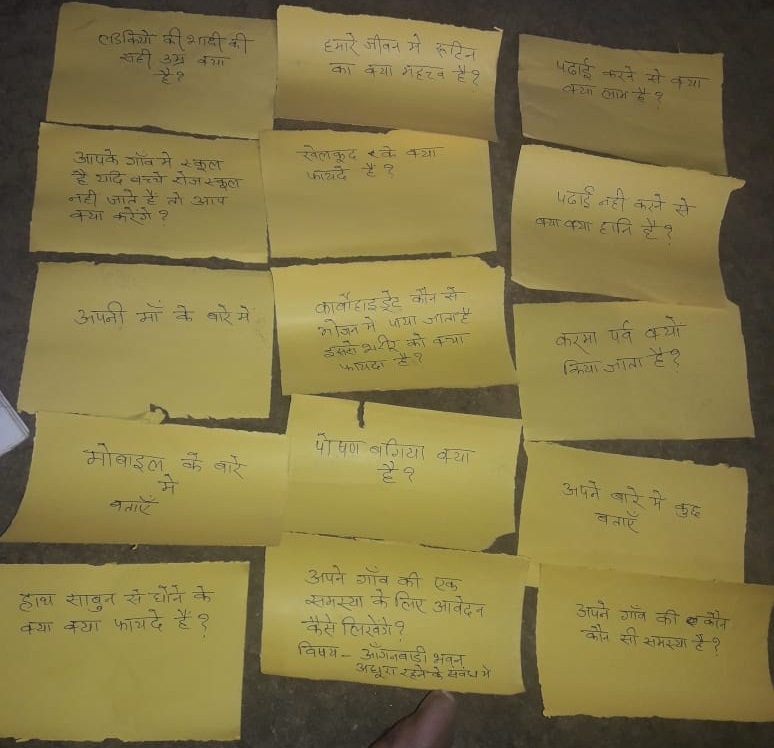 लडकियो की शादी की
सही उम्र क्या
है?
हमारे जीवन मे रूटिन
का क्या महत्त्व है?
पढाई करने से क्या
क्या लाभ है?
आपके गाँव मे स्कूल
है यदि बच्चे रोज स्कूल
नही जाते है तो आप
क्या करेंगे?
खेलकूद के क्या
फायदे है?
पढाई नही करने से
क्या क्या हानि है?
अपनी माँ के बारे मे
कार्बोहाइड्रेट कौन से
भोजन मे पाया जाता है
इससे शरीर को क्या
फायदा है?
करमा पर्व क्यों
किया जाता है?
मोबाइल के बारे
मे
बताएँ
पोषण बगिया क्या
है?
अपने बारे मे कुछ
बताएँ
हाथ साबुन से धोने के
क्या क्या फायदे हैं?
अपने गाँव की एक
समस्या के लिए आवेदन
कैसे लिखेंगे?
विषय - आँगनबाडी भवन
अधूरा रहने के संबंध मे
अपने गाँव की कौन
कौन सी समस्या है?